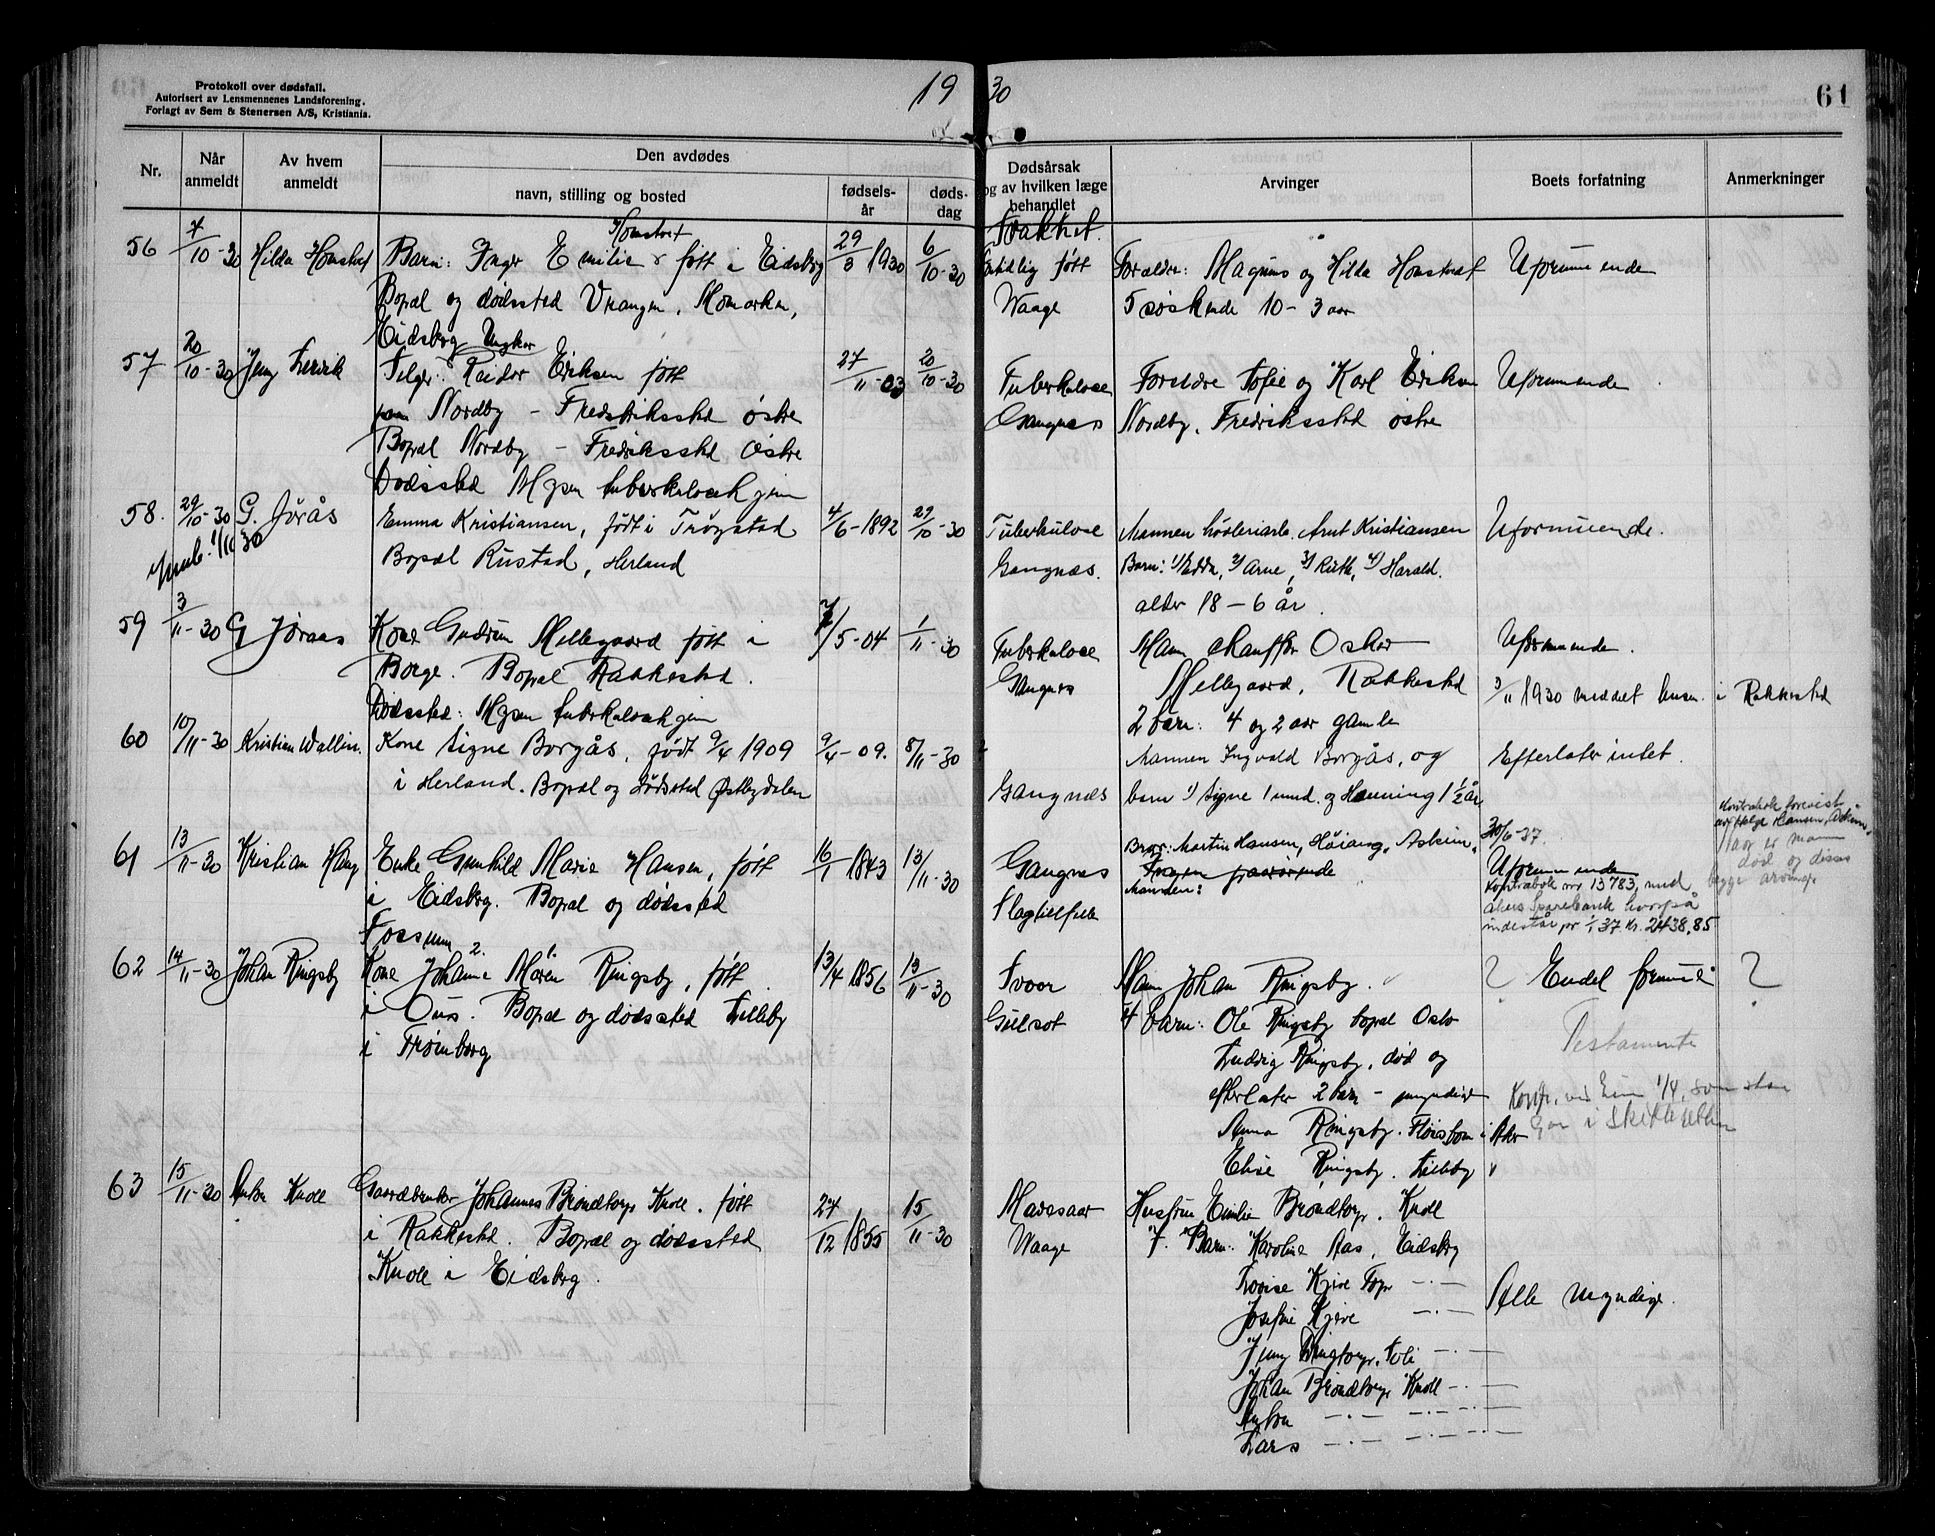 Protokoll over dødsfall.
Autorisert av Lensmennenes Landsforening.
Forlagt av Sem & Stenersen A/S, Kristiania.
19 30
61
Nr.
Når anmeldt
Av hvem anmeldt
Den avdødes
navn, stilling og bosted
fødsels-år
døds-dag
Dødsårsak og av hvilken læge behandlet
Arvinger
Boets forfatning
Anmerkninger
56 7/10-30 Hilda Homstvet Barn: Inger Emilie Homstvet født i Eidsberg 29/3 1930 6/10-30 Svakhet.
født Forældre: Magnus og Hilda Homstvet Uformuende
Bopæl og dødssted Vrangen, Momarken, Waage 5 søskende 10-3 aar
Eidsberg
57 20/10-30 Jenny Ungkar
Reidar Eriksen født 27/11-03 20/10-30 Tuberkulose Forældre Sofie og Karl Eriksen Uformuende
Nordby - Fredriksstad østre Gangnæs Nordby, Fredriksstad østre
Bopæl Nordby - Fredriksstad østre
Dødssted Mysen tuberkulosehjem
58. 29/10-30 G. Jørås Emma Kristiansen, født i Trøgstad 4/6-1892 29/10-30 Tuberkulose Mannen Arnt Kristiansen Uformuende.
1/11 30 Bopæl Rustad, Herland Gangnæs. Barn: 1) Edda, 2) Arne, 3) Ruth, 4) Harald.
alder 18-6 år.
59 3/11-30 G Jøraas Kone Gudrun Mellegaard født i 7/5-04 1/11-30 Tuberkulose Mann chauffør Oskar Uformuende.
Borge. Bopæl Rakkestad. Gangnæs Mellegaard, Rakkestad 3/11 1930 meddelt lensm. i Rakkestad
Dødssted: Mysen tuberkulosehjem 2 barn: 4 og 2 aar gamle
60 10/11-30 Kristian Wallin. Kone Signe Borgås, født 9/4 1909 9/4-09. 8/11-30 ? Mannen Ingvald Borgås, og Efterlater intet.
i Herland. Bopæl og dødssted Østbydalen Gangnæs barn 1) Signe 1 mnd. og Henning 1 1/2 år
Kontrabok forevist
av Helge Hansen, Askim,
far er mann
død og disse
begge arvinger
61 13/11-30 Kristian Haug Enke Gunhild Marie Hansen, født 16/1 1843 13/11-30 Gangnes Bror: Martin Hansen, Høiang, Askim. 30/6-37.
i Eidsberg. Bopæl og dødssted Slagtilfælle Ingen paarørende Uformuende
Fossum Manden: Kontrabok nr 13783, med
Sparebank hvorpå
indestår pr 1/1 37 Kr. 2438,85
62 14/11-30 Johan Ringsby Kone Johanne 2. Maren 1. Ringsby, født 13/4 1856 13/11-30 Mann Johan Ringsby. ? Endel formue ?
i Ons. Bopæl og dødssted Lilleby Gulsot 4 barn: Ole Ringsby bopæl Oslo
i Trømborg Ludvig Ringsby, død og Testamente
efterlater 2 barn - umyndige
Anna Ringsby. i Aker
Elise Ringsby. Lilleby
63 15/11-30 Anton Knoll Gaardbruker Johannes Brandtorp Knoll. født 27/12 1855 15/11-30 Marssaar Hustru Emilie Brandtorp. Knoll
i Rakkestad. Bopæl og dødssted Waage 7. Barn: Karoline Aas, Eidsberg
Knoll i Eidsberg. Lovise Kjeve Torp -.-
Josefine Kjeve -.- Alle myndige.
Jenny -.-
Johan Brandtorp Knoll -.-
Anton -.- -.-
Lars -.- -.-